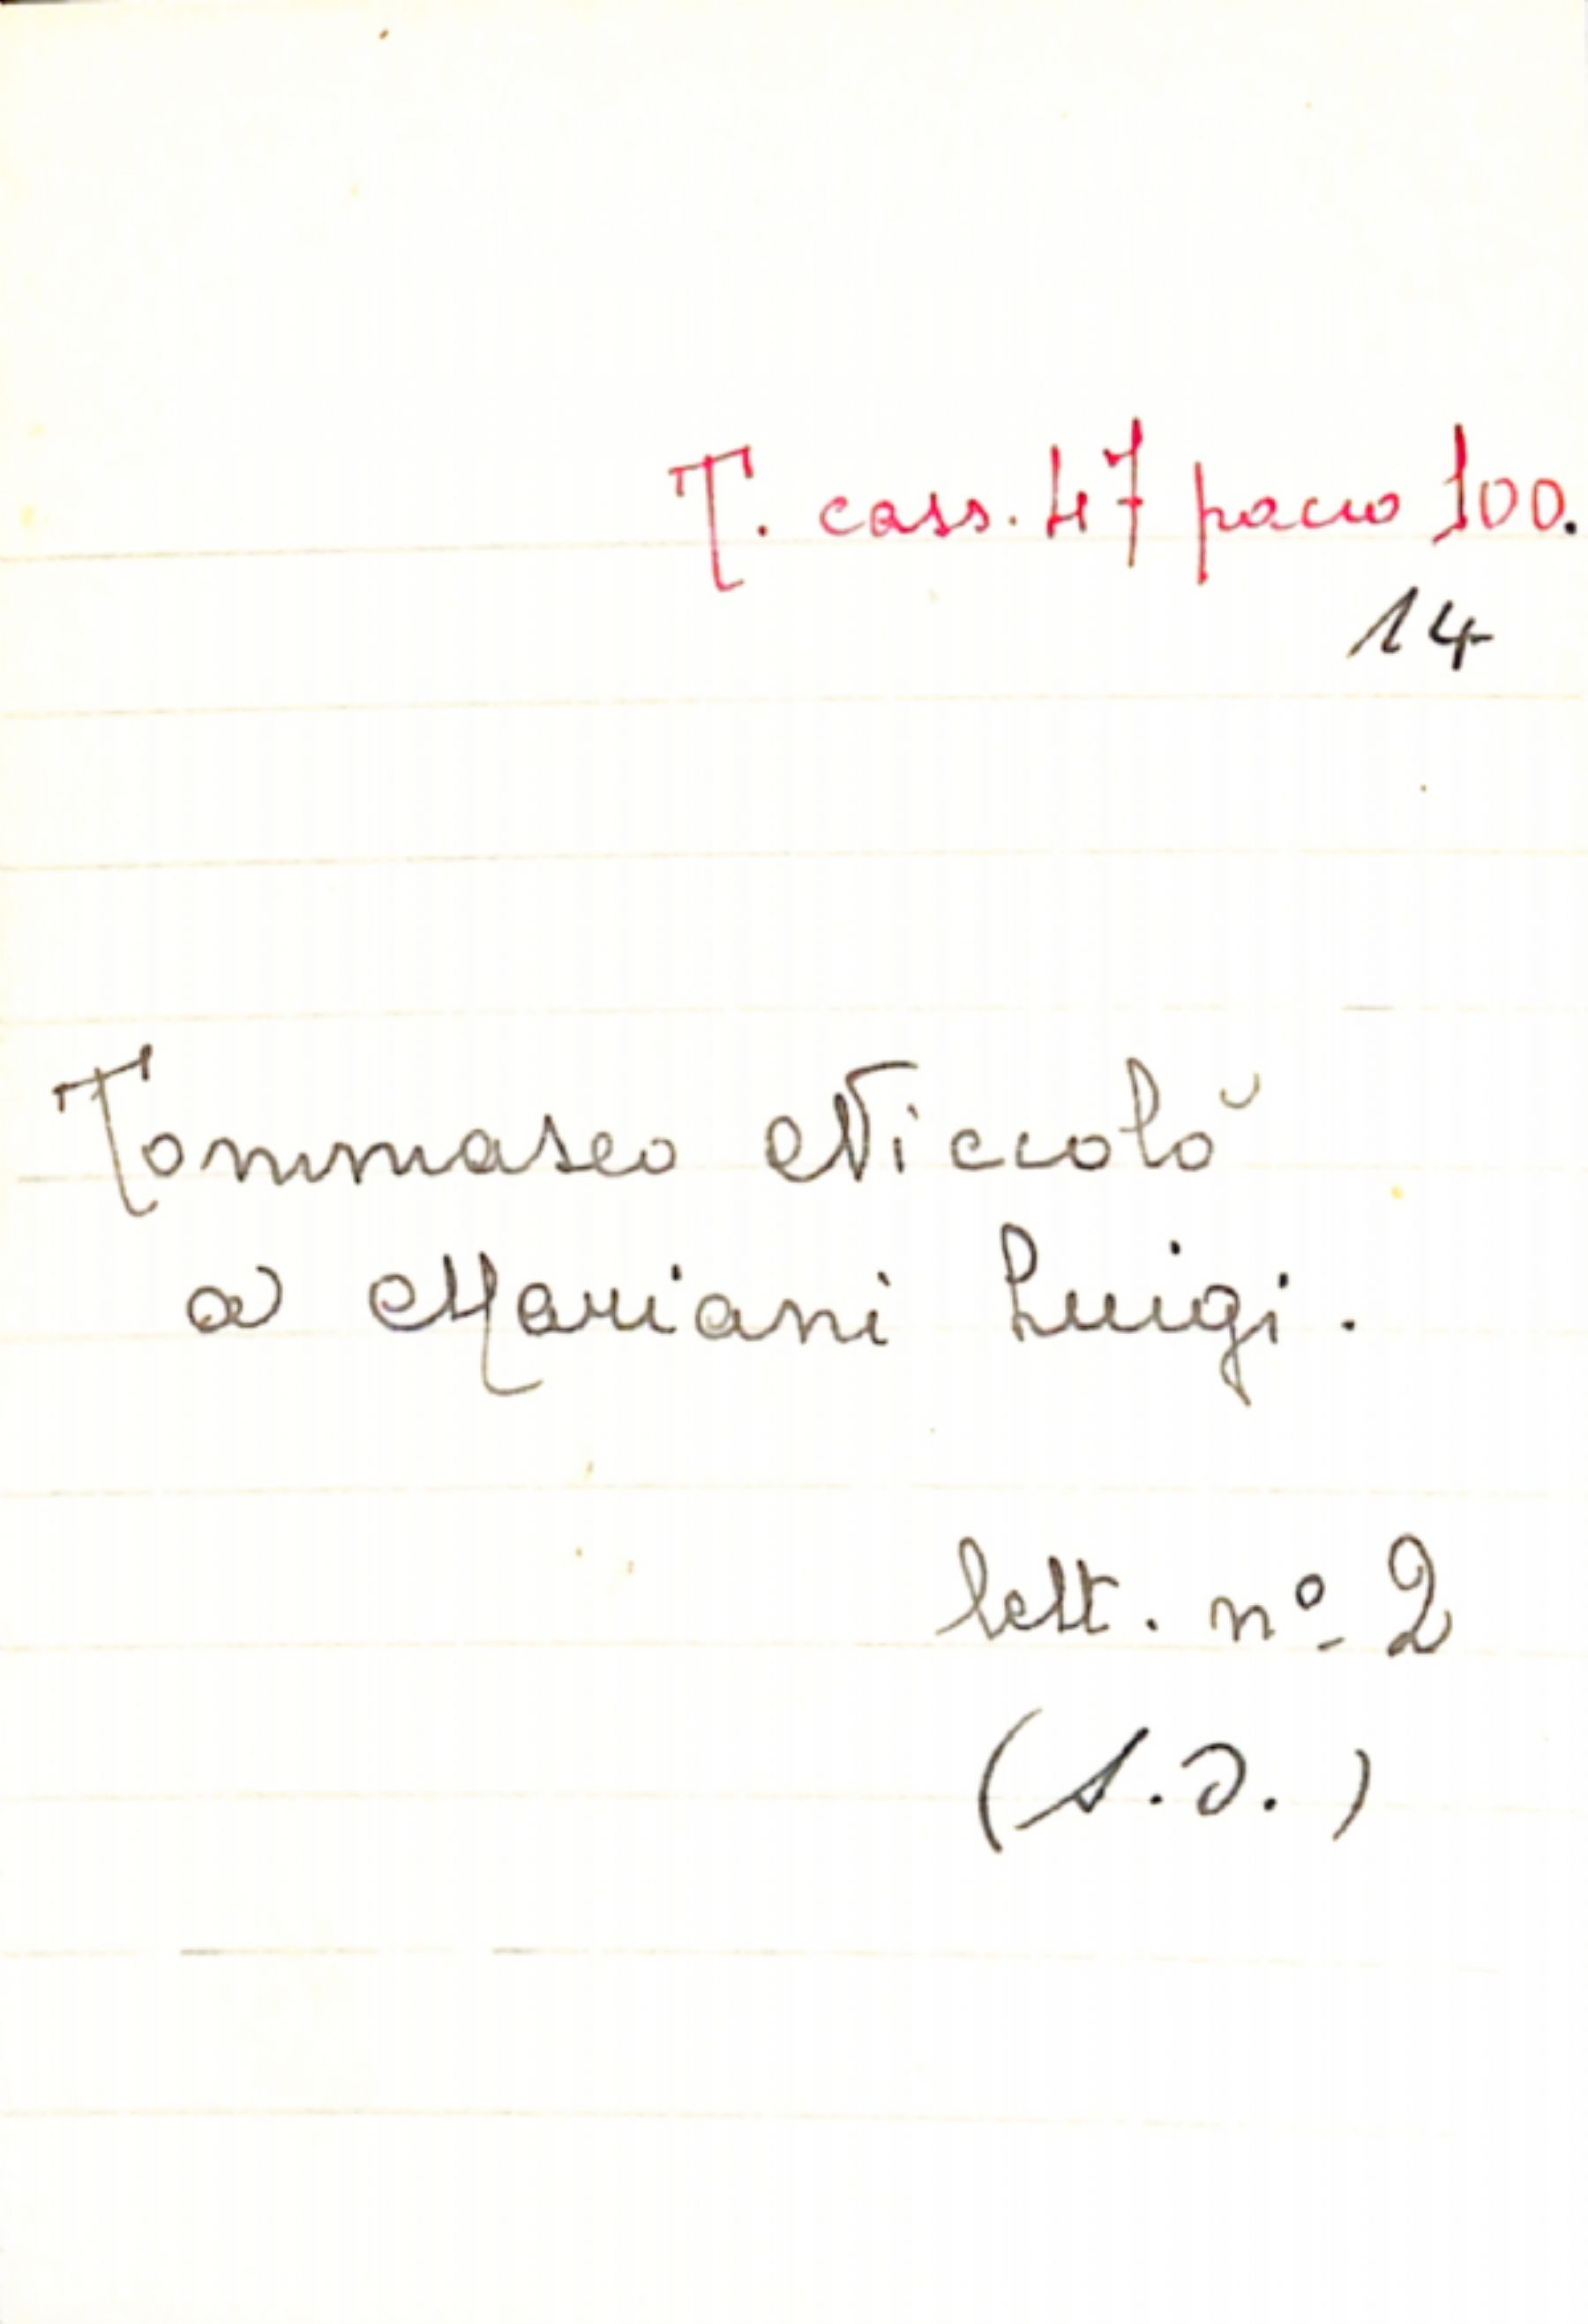 T. cass. 47 pacco 100.
14
Tommaseo Niccolò
a Mariani Luigi.
lett. nº 2
(s.d.)